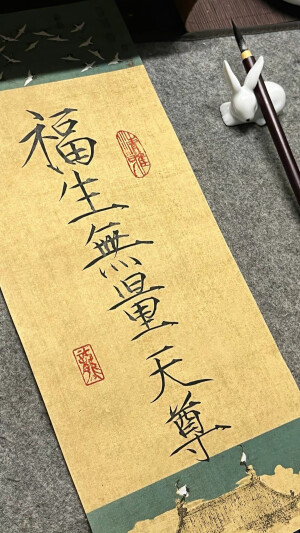 福生無量天尊